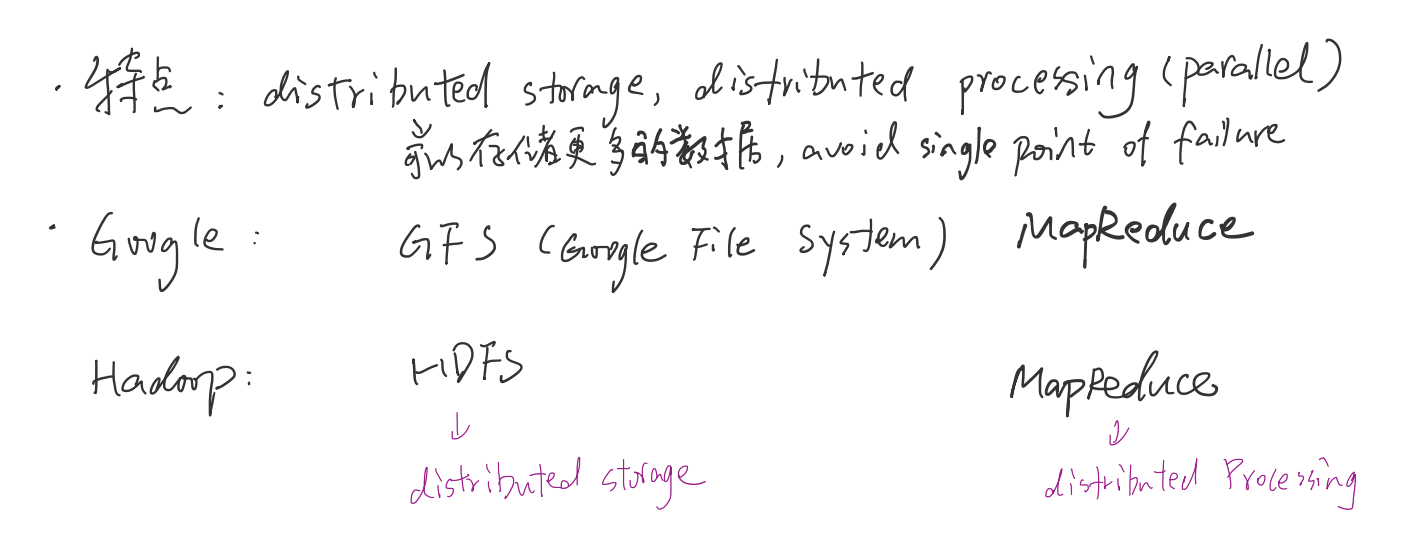 · 特点: distributed storage, distributed processing (parallel)
可以存储更多的数据, avoid single point of failure
· Google: GFS (Google File System) MapReduce
Hadoop: HDFS MapReduce
distributed storage distributed Processing